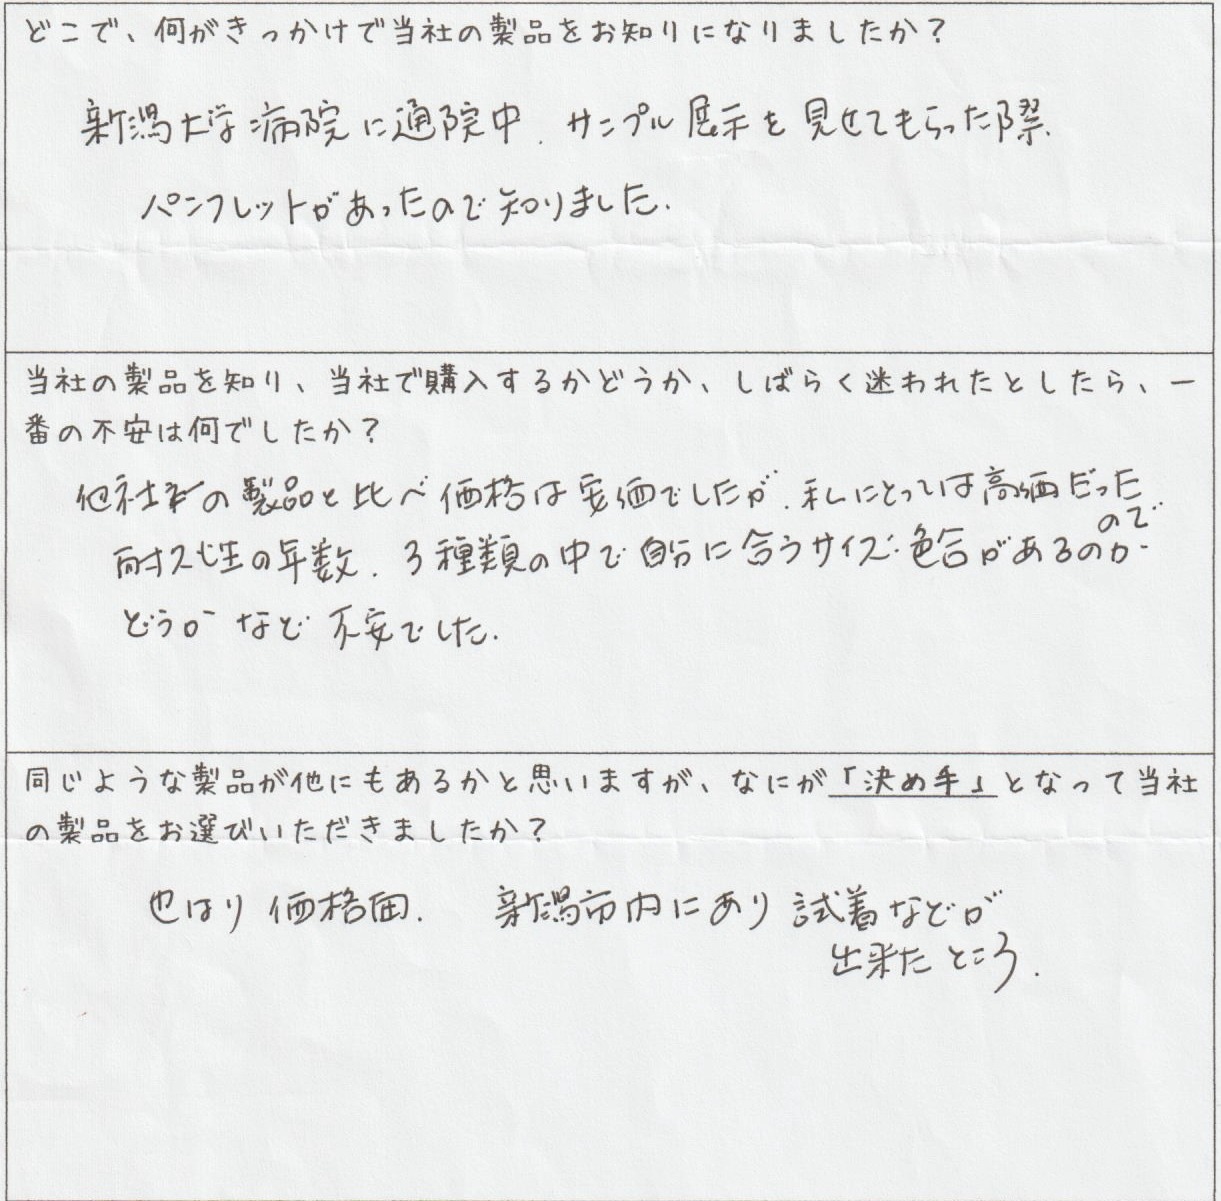 どこで、何がきっかけで当社の製品をお知りになりましたか？
新潟大学病院に通院中、サンプル展示を見せてもらった際、
パンフレットがあったので知りました。
当社の製品を知り、当社で購入するかどうか、しばらく迷われたとしたら、一
番の不安は何でしたか？
他社の製品と比べ価格は安価でしたが、私にとっては高価だった
ので
耐久性の年数、3種類の中で自分に合うサイズ・色合があるのか
どうか など 不安でした。
同じような製品が他にもあるかと思いますが、なにが「決め手」となって当社
の製品をお選びいただきましたか？
やはり 価格面。 新潟市内にあり 試着などが
出来たところ。